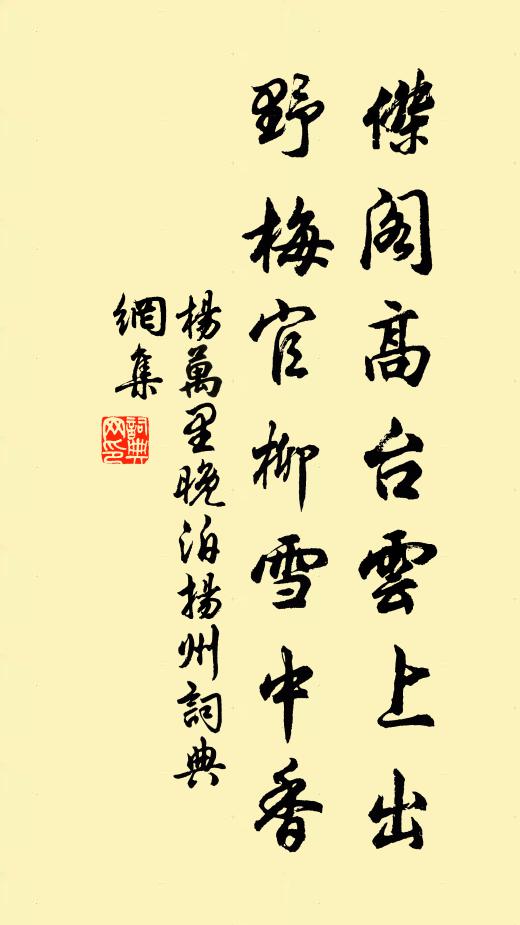 傑阁高台雲上出
野梅官柳雪中香
楊萬里晚泊揚州詞典
網集
詞典网印